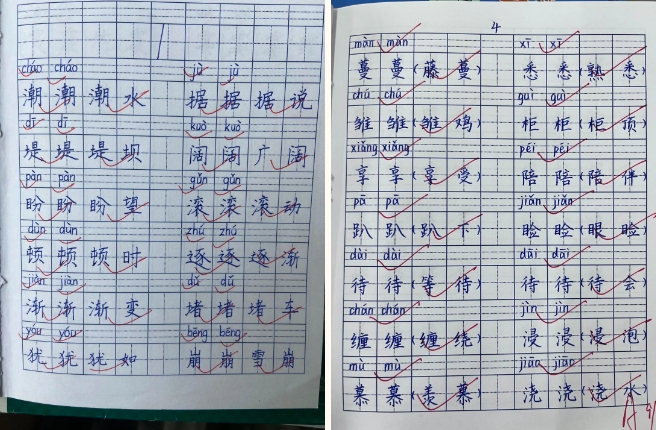 cháo cháo jù jù
潮 潮 潮 水 据 据 据 说
dī dī kuò kuò
堤 堤 堤 坝 阔 阔 广 阔
pàn pàn gǔn gǔn
盼 盼 盼 望 滚 滚 滚 动
dùn dùn zhú zhú
顿 顿 顿 时 逐 逐 逐 渐
jiàn jiàn dǔ dǔ
渐 渐 渐 变 堵 堵 堵 车
yóu yóu bēng bēng
犹 犹 犹 如 崩 崩 雪 崩
4
màn màn xī xī
蔓 蔓 (藤 蔓) 悉 悉 (熟 悉)
chú chú guì guì
雏 雏 (雏 鸡) 柜 柜 (柜 顶)
xiǎng xiǎng péi péi
享 享 (享 受) 陪 陪 (陪 伴)
pā pā jiǎn jiǎn
趴 趴 (趴 下) 睑 睑 (眼 睑)
dài dài dāi dāi
待 待 (等 待) 待 待 (待 会)
chán chán jìn jìn
缠 缠 (缠 绕) 浸 浸 (浸 泡)
mù mù jiāo jiāo
慕 慕 (羡 慕) 浇 浇 (浇 水)